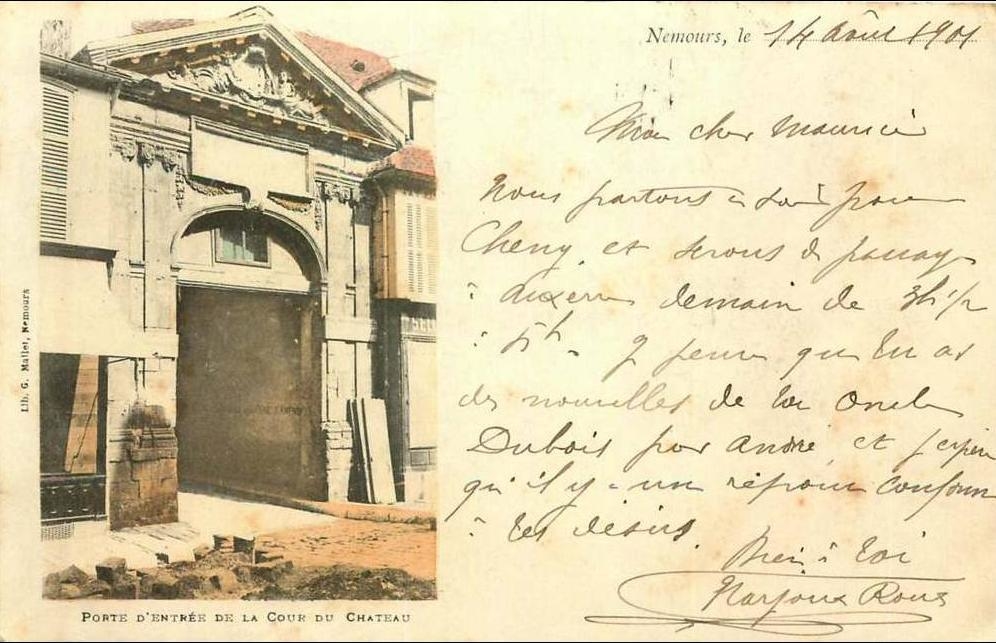 Nemours, le 14 Août 1901
Mon cher Maurice
Nous partons ce soir pour
Cheny, et serons de passage
à Auxerre demain de 3h 1/2
à 5h. Je pense que tu as
des nouvelles de ton oncle
Dubois par André, et j'espère
qu'il y a un réponse conforme
à tes désirs.
Bien à toi
Lib. G. Mallet, Nemours
PORTE D'ENTRÉE DE LA COUR DU CHATEAU